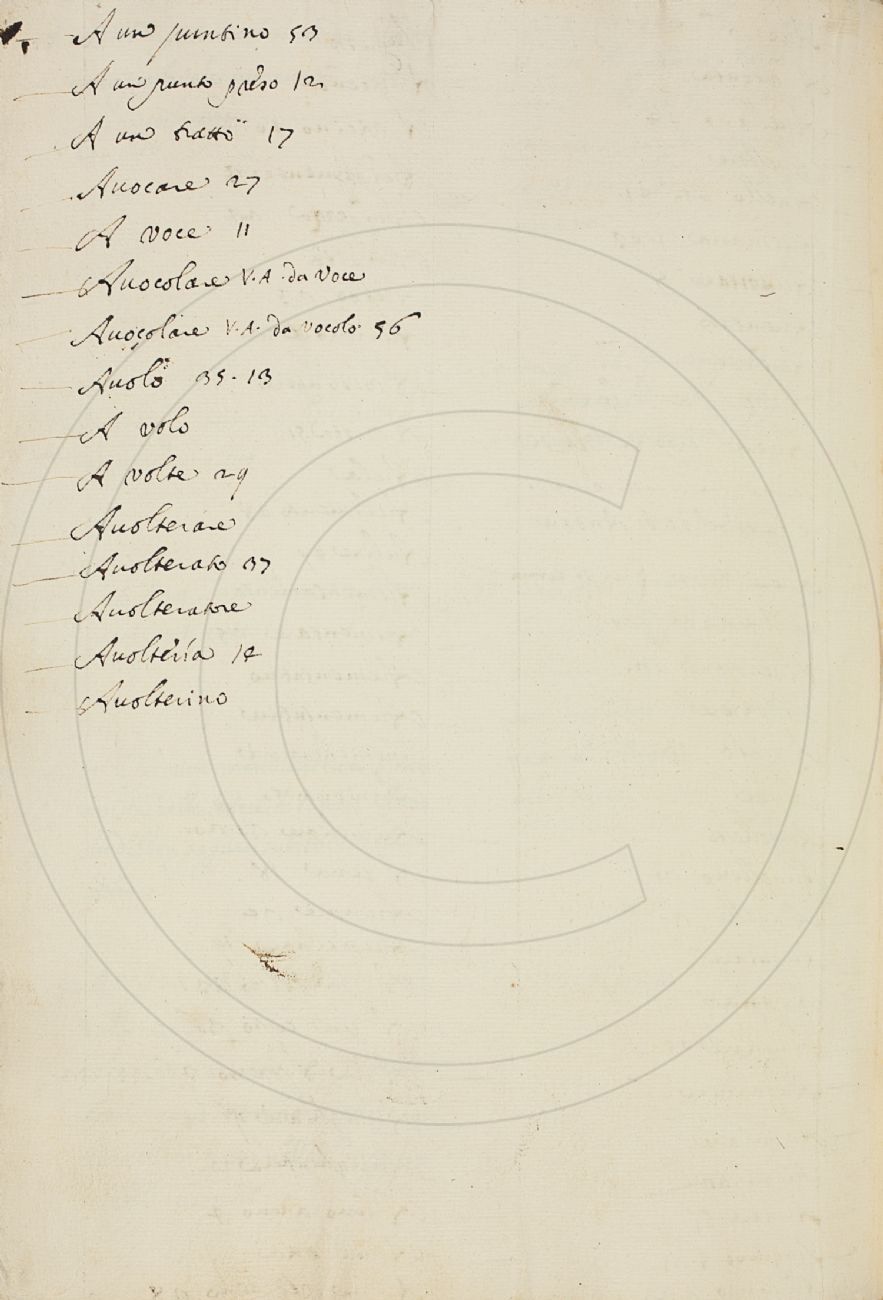 A un puntino 53
A un punto preso 12
A un tratto 17
Auocare 27
A voce 11
Auocolare V. A. da Voce
Auocolare V. A. da vocolo 56
Auolo 35 - 13
A volo
A volte 29
Auolterare
Auolterato 37
Auolteratore
Auolteria 14
Auolterino